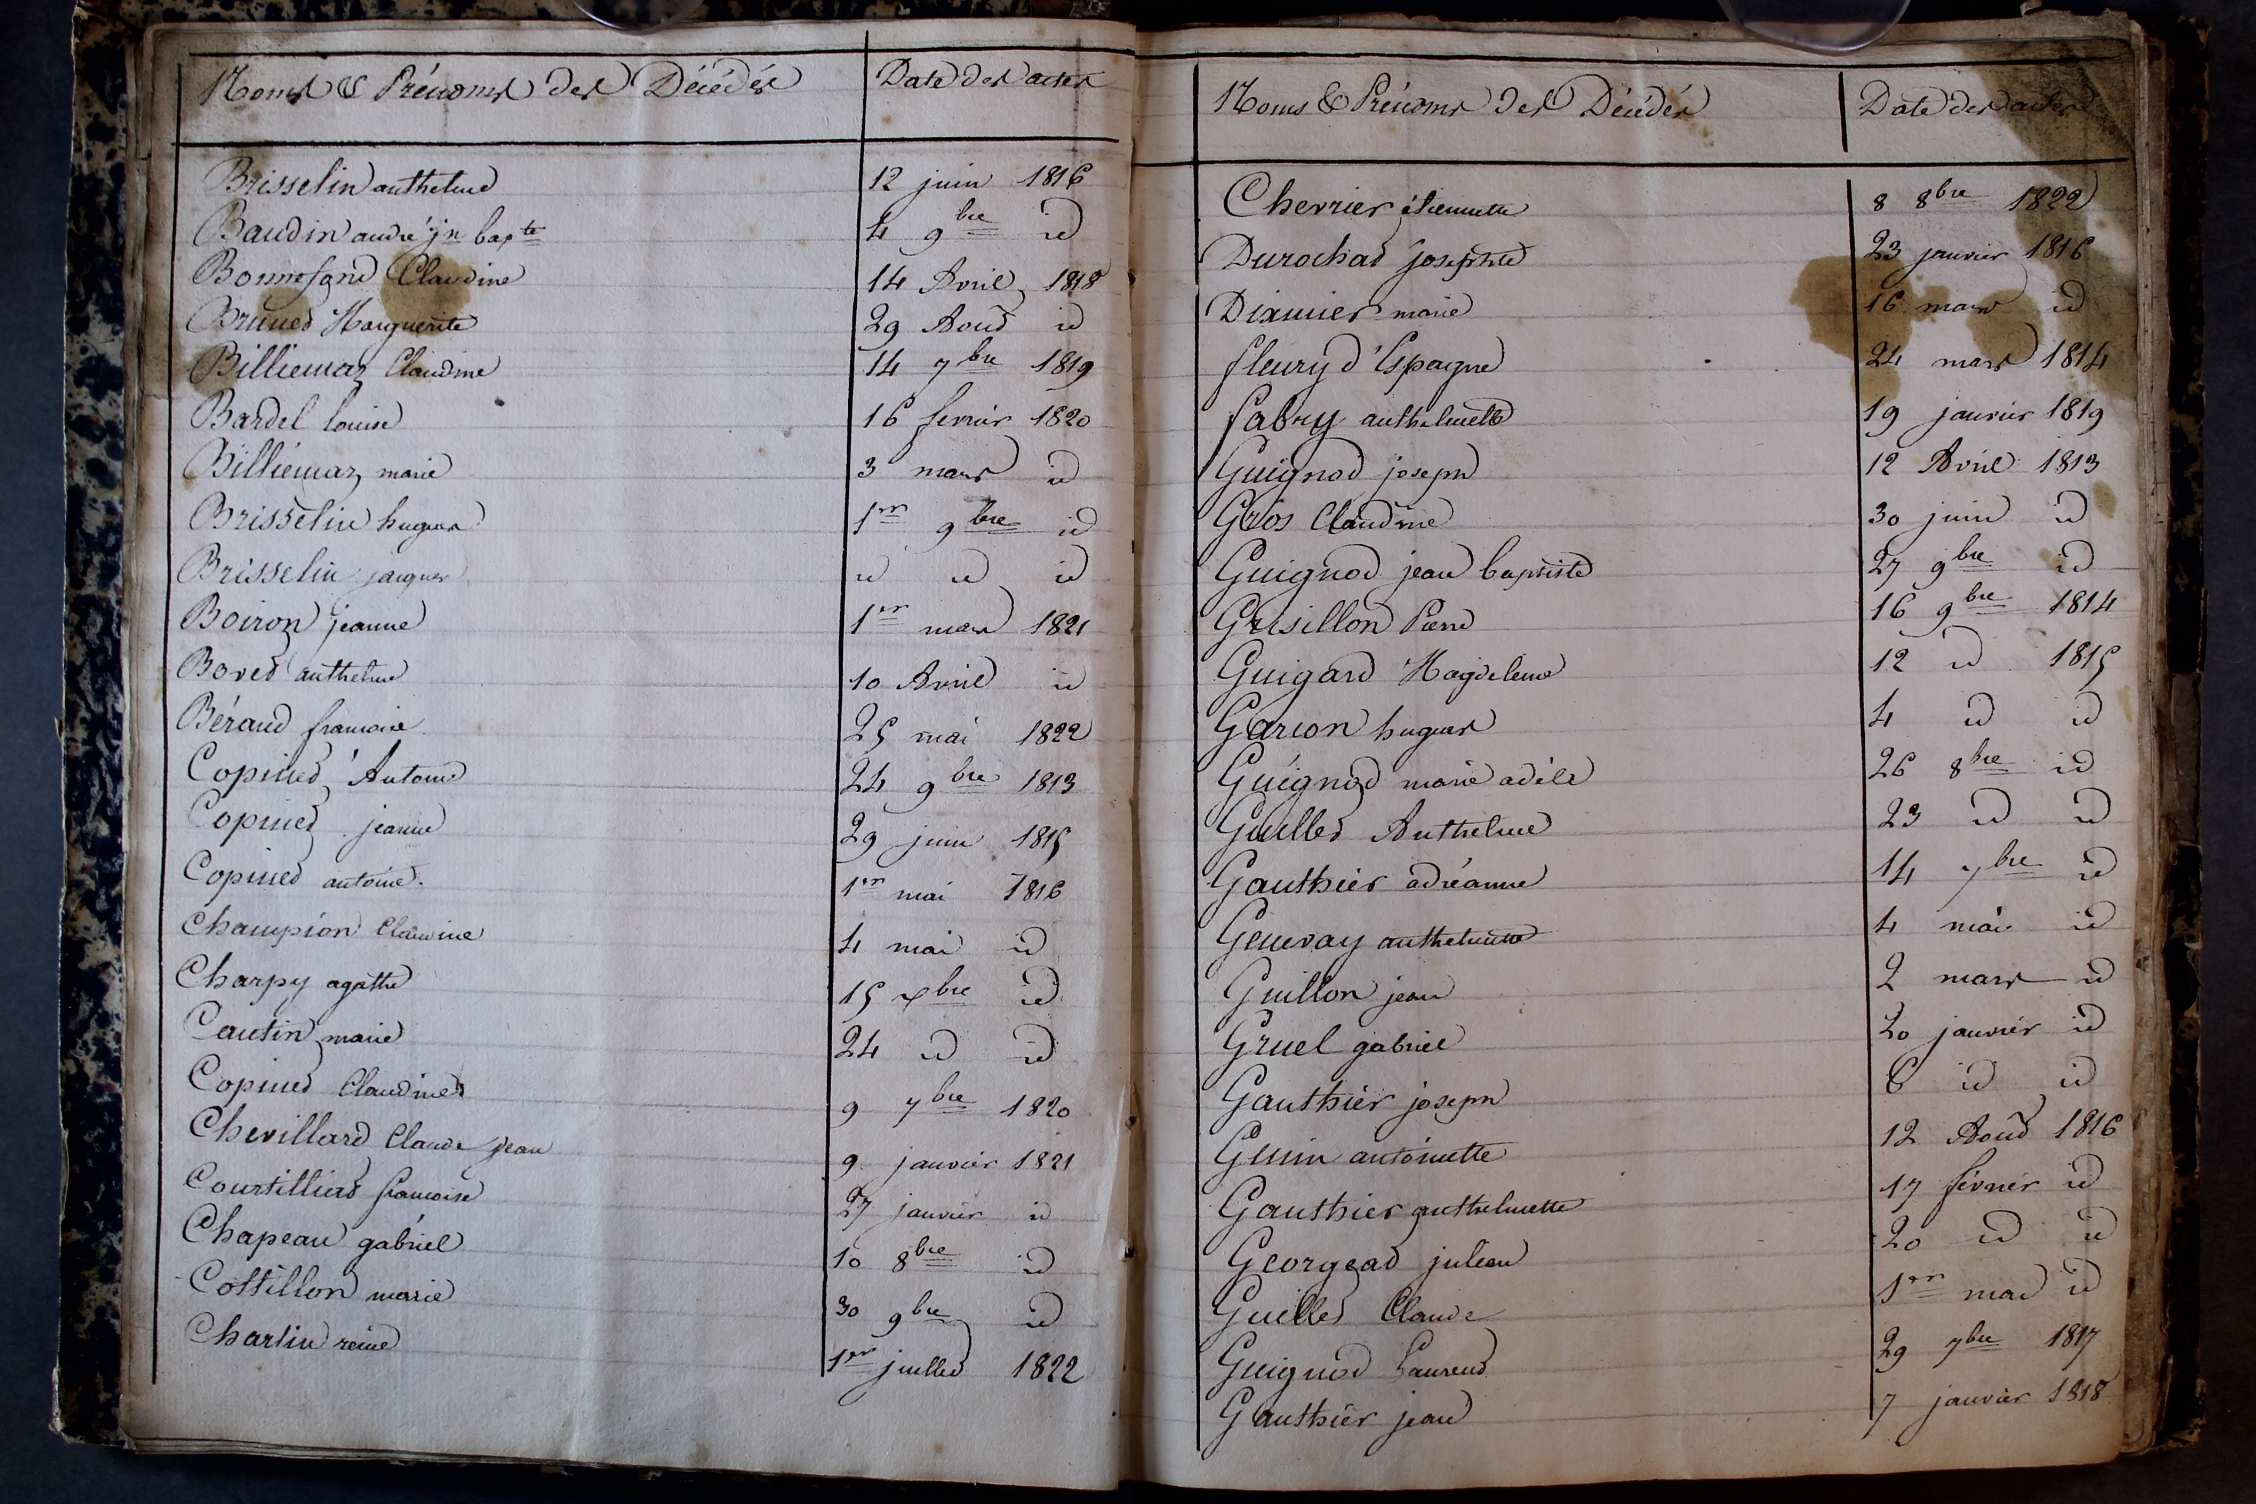 Noms & Prénoms des Décédés Date des actes
Brisselin anthelme 12 juin 1816
Baudin andré jn bapte 4 9bre id
Bonnefond Claudine 14 Avril 1818
Brunet Marguerite 29 Aout id
Billiemaz Claudine 14 7bre 1819
Bardel louise 16 fevrier 1820
Billiémaz marie 3 mars id
Brisselin hugues 1er 9bre id
Brisselin jacques id id id
Boiron jeanne 1er mars 1821
Bovet anthelme 10 Avril id
Béraud francoise 25 mai 1822
Copinet Antoine 24 9bre 1813
Copinet jeanne 29 juin 1815
Copinet antoine 1er mai 1816
Champion Claudine 4 mai id
Charpy agathe 15 xbre id
Cautin marie 24 id id
Copinet Claudine 9 7bre 1820
Chevillard Claude jean 9 janvier 1821
Courtilliat francoise 27 janvier id
Chapeau gabriel 10 8bre id
Cottillon marie 30 9bre id
Charlin reine 1er juillet 1822
Noms & Prénoms des Décédés Date des actes
Chevrier étiennette 8 8bre 1822
Durochat josephte 23 janvier 1816
Dixmier marie 16 mars id
fleury d'Espagne 24 mars 1814
fabry anthelmette 19 janvier 1819
Guignod joseph 12 Avril 1813
Gros Claudine 30 juin id
Guignod jean baptiste 27 9bre id
Grisillon Pierre 16 9bre 1814
Guigard Magdeleine 12 id 1815
Garion hugues 4 id id
Guignod marie adèle 26 8bre id
Guillet Anthelme 23 id id
Gauthier adréanne 14 7bre id
Genevay anthelmette 4 mai id
Guillon jean 2 mars id
Gruel gabriel 20 janvier id
Gauthier joseph 6 id id
Genin antoinette 12 Aout 1816
Gauthier anthelmette 17 février id
Georgeat julien 20 id id
Guillet Claude 1er mai id
Guignod Laurend 29 7bre 1817
Gauthier jean 7 janvier 1818